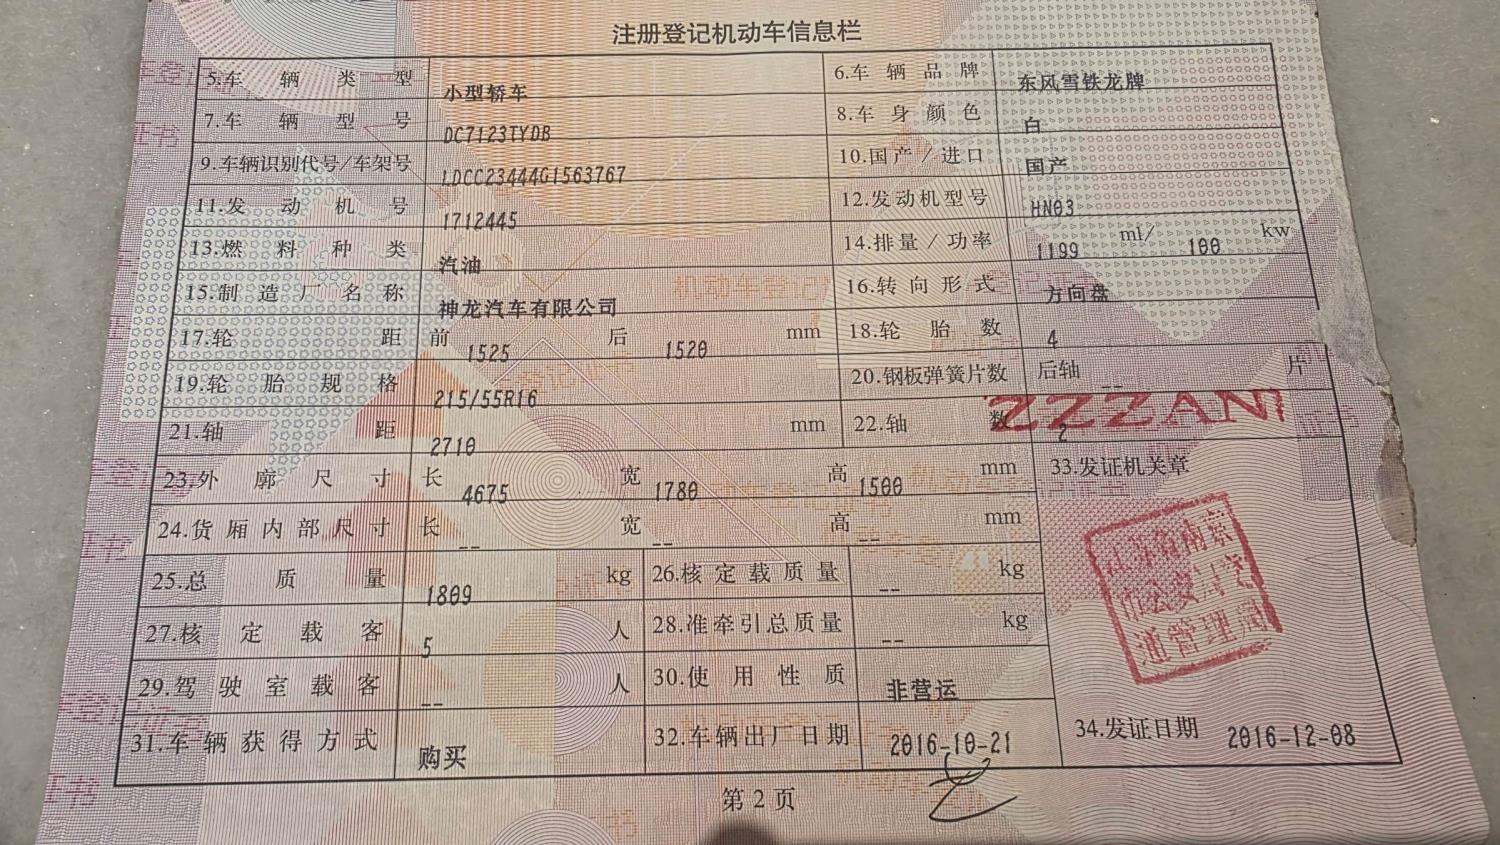 注册登记机动车信息栏
5.车辆类型 小型轿车 6.车辆品牌 东风雪铁龙牌
7.车辆型号 DC7123TYDB 8.车身颜色 白
9.车辆识别代号/车架号 LDCC23444G1563767 10.国产/进口 国产
11.发动机号 1712445 12.发动机型号 HN03
13.燃料种类 汽油 14.排量/功率 1199 ml/ 100 kw
15.制造厂名称 神龙汽车有限公司 16.转向形式 方向盘
17.轮距 前 1525 后 1520 mm 18.轮胎数 4
19.轮胎规格 215/55R16 20.钢板弹簧片数 后轴 -- 片
ZZZANI
21.轴距 2710 mm 22.轴数 2
23.外廓尺寸 长 4675 宽 1780 高 1500 mm 33.发证机关章
24.货厢内部尺寸 长 -- 宽 -- 高 -- mm
25.总质量 1809 kg 26.核定载质量 -- kg
江苏省南京
市公安局交
通管理局
27.核定载客 5 人 28.准牵引总质量 -- kg
29.驾驶室载客 -- 人 30.使用性质 非营运
31.车辆获得方式 购买 32.车辆出厂日期 2016-10-21 34.发证日期 2016-12-08
第2页